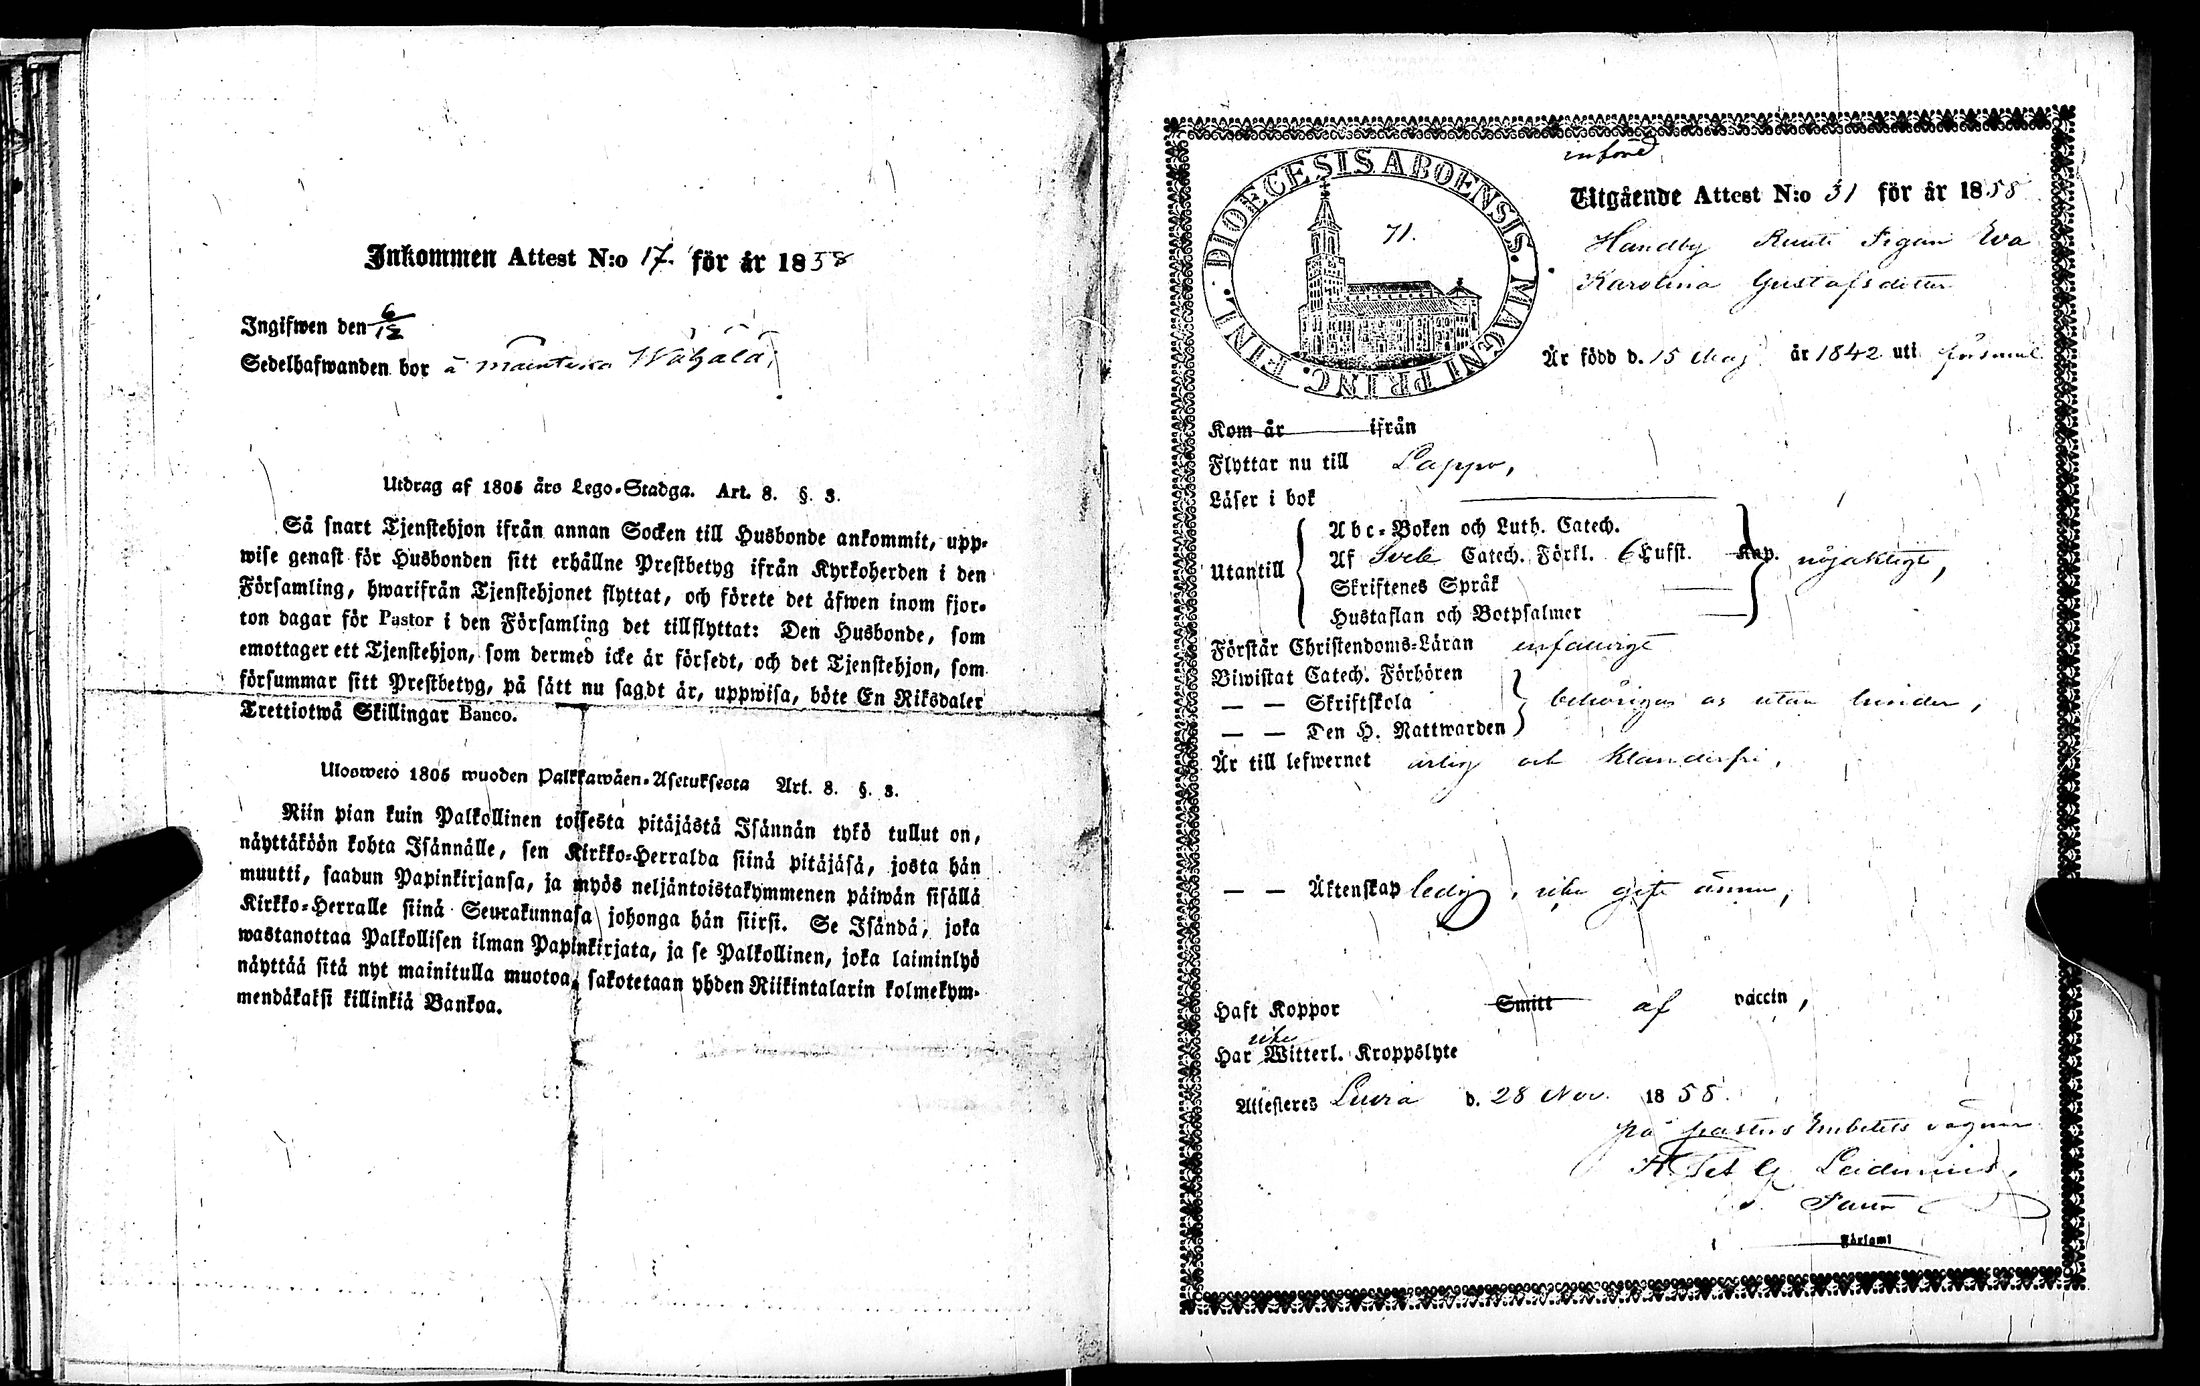 Inkommen Attest N:o 17. för år 1858
Ingifwen den 6/12
Sedelhafwanden bor å Wähälä,
Utdrag af 1805 års Lego-Stadga. Art. 8. §. 3.
Så snart Tjenstehjon ifrån annan Socken till Husbonde ankommit, upp-
wise genast för Husbonden sitt erhållne Prestbetyg ifrån Kyrkoherden i den
Församling, hwarifrån Tjenstehjonet flyttat, och förete det äfwen inom fjor-
ton dagar för Pastor i den Församling det tillflyttat: Den Husbonde, som
emottager ett Tjenstehjon, som dermed icke är försedt, och det Tjenstehjon, som
försummar sitt Prestbetyg, på sätt nu sagdt är, uppwisa, böte En Riksdaler
Trettiotwå Skillingar Banco.
Uloswetö 1805 wuoden Palkkawäen-Asetuksesta Art. 8. §. 3.
Niin pian kuin Palkollinen toisesta pitäjästä Isännän tykö tullut on,
näyttäköön kohta Isännälle, sen Kirkko-Herralda siinä pitäjäsä, josta hän
muutti, saadun Papinkirjansa, ja myös neljäntoistakymmenen päiwän sisällä
Kirkko-Herralle siinä Seurakunnasa johonga hän siirsi. Se Isändä, joka
wastanottaa Palkollisen ilman Papinkirjata, ja se Palkollinen, joka laiminlyö
näyttää sitä nyt mainitulla muotoa, sakotetaan yhden Riikintalarin kolmekym-
mendäkaksi killinkiä Bankoa.
införd
DIOECESIS ABOENSIS. MAGNI PRINC. FINL.
71.
Utgående Attest N:o 31 för år 1858
Handby Pigan Eva
Karolina Gustafsdotter
Är född d. 15 Maj år 1842 uti församl
Kom år ifrån
Flyttar nu till Lappo,
Läser i bok
Utantill
Abc-Boken och Luth. Catech.
Af Sveb Catech. Förkl. 6 Hufst. Kap. nöjaktigt,
Skriftenes Språk
Hustaflan och Botpsalmer
Förstår Christendoms-Läran enfaldigt
Biwistat Catech. Förhören
— — Skriftskola behörigen os utan hinder,
— — Den H. Nattwarden
Är till lefwernet ärlig och klanderfri,
— — Äktenskap ledig, icke gift ännu,
Haft Koppor Smitt af vaccin,
icke
Har Witterl. Kroppslyte
Attesteres Luvia d. 28 Nov. 1858.
på pastors Embetets vägnar
Församl